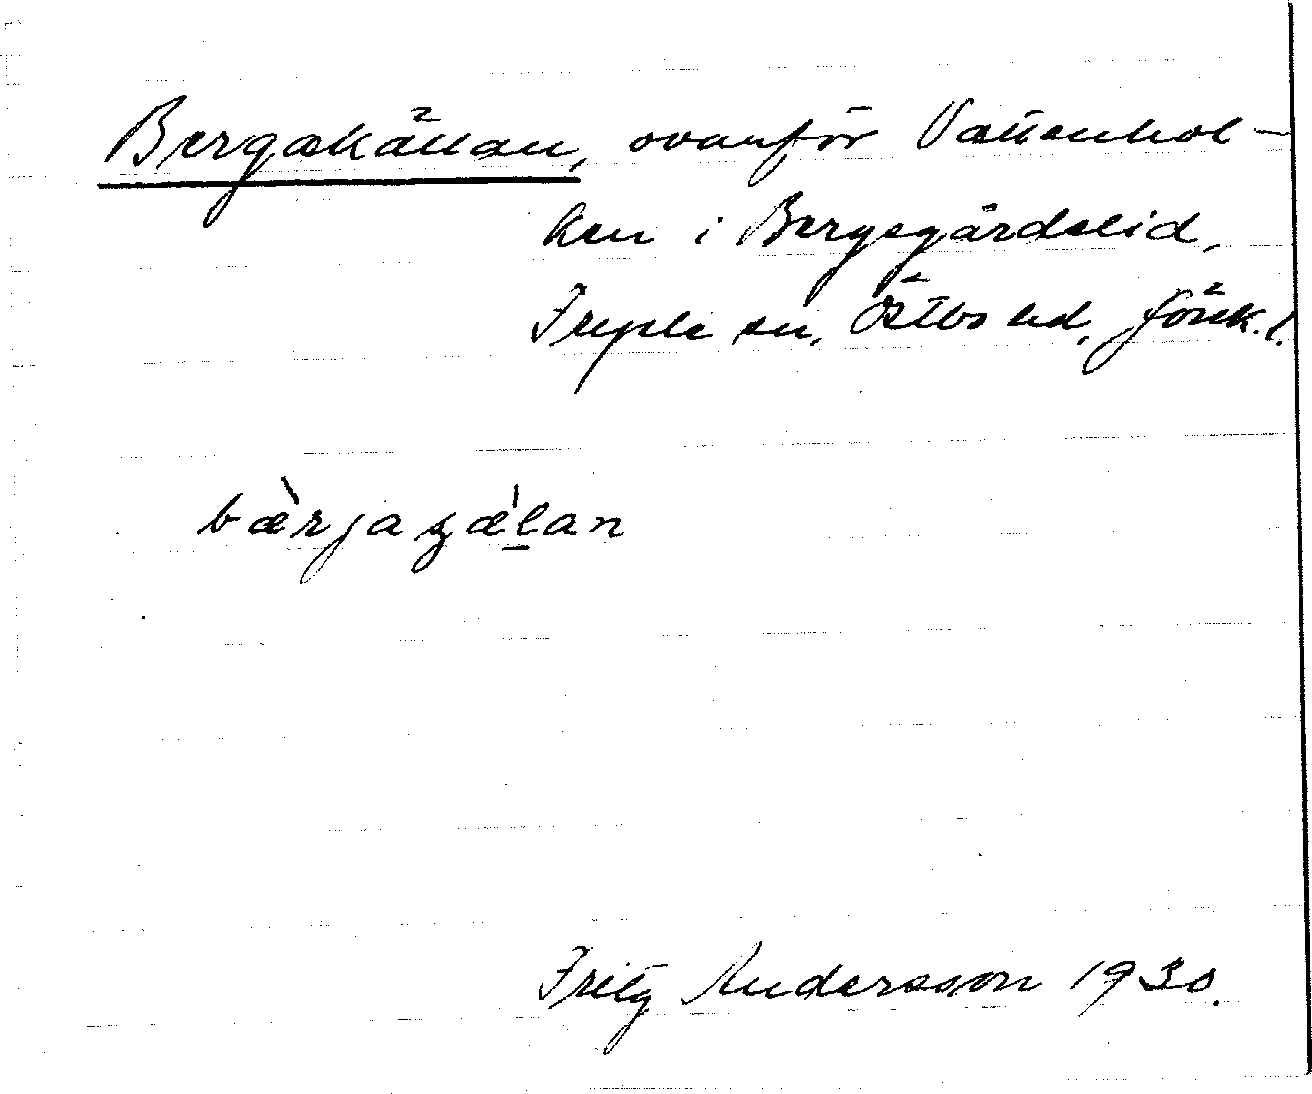 Bergakällan, ovanför Vattenhol-
ken i Bergsgårdslid,
Fryele sn, Östbo hd, Jönk. l.
bærja ꞩælan
Fritz Andersson 1930.